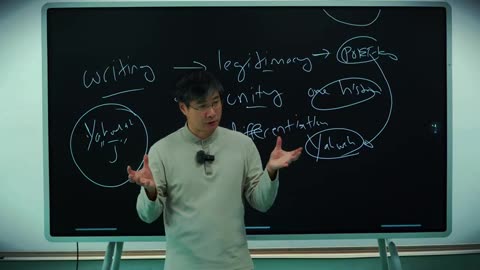 writing → legitimacy → Poetic
unity one history
differentiation Yahweh
Yahweh
"J"